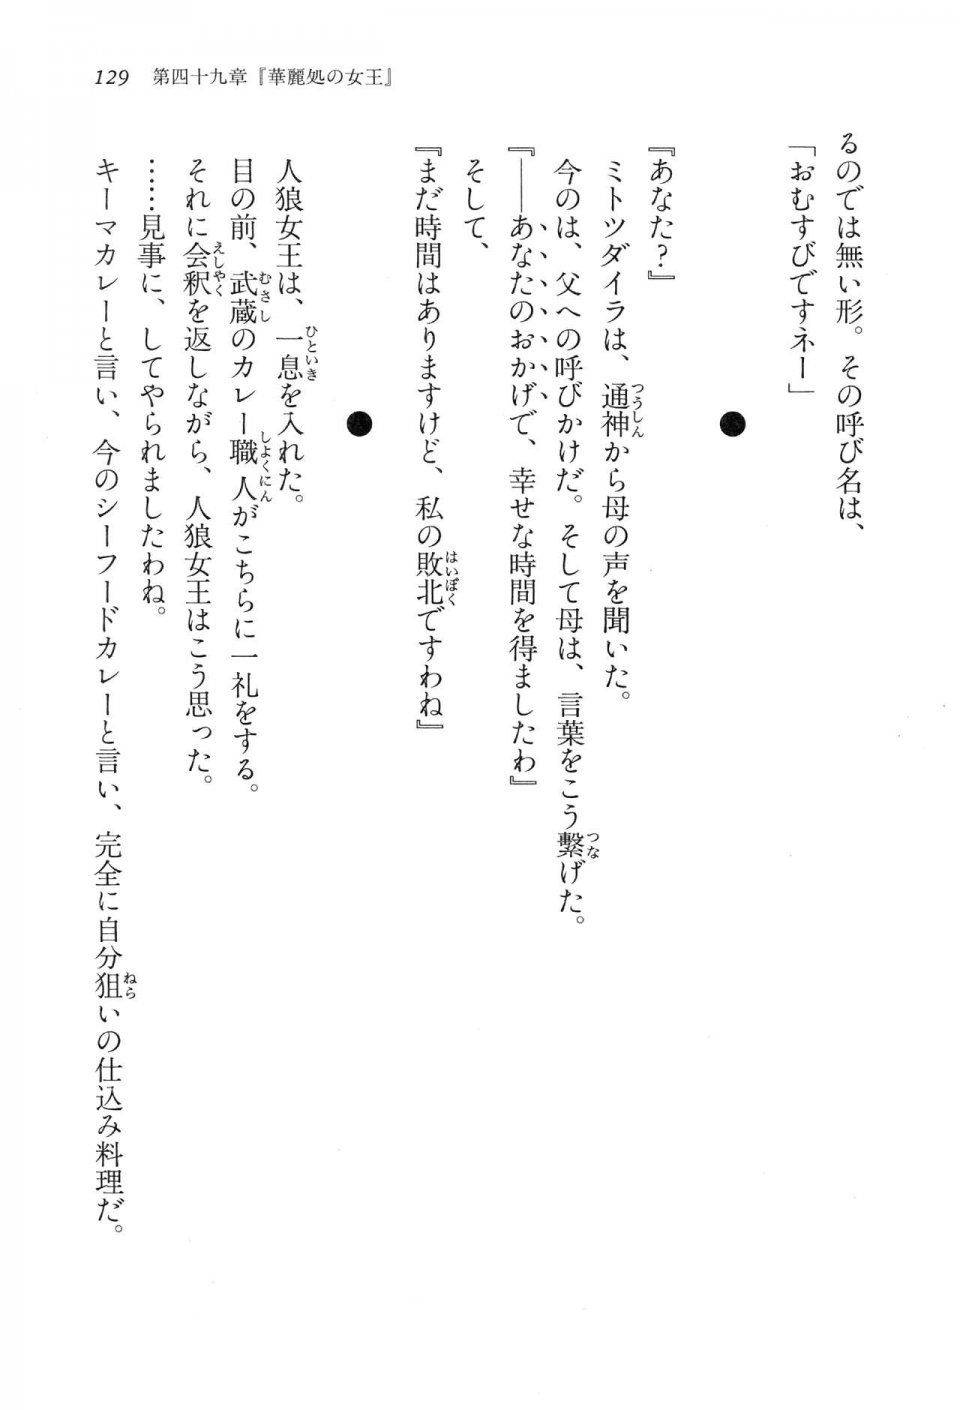 129 第四十九章『華麗処の女王』
るのでは無い形。その呼び名は、
「おむすびですネー」
●
『あなた？』
ミトツダイラは、通神から母の声を聞いた。
今のは、父への呼びかけだ。そして母は、言葉をこう繫げた。
『――あなたのおかげで、幸せな時間を得ましたわ』
そして、
『まだ時間はありますけど、私の敗北ですわね』
●
人狼女王は、一息を入れた。
目の前、武蔵のカレー職人がこちらに一礼をする。
それに会釈を返しながら、人狼女王はこう思った。
……見事に、してやられましたわね。
キーマカレーと言い、今のシーフードカレーと言い、完全に自分狙いの仕込み料理だ。